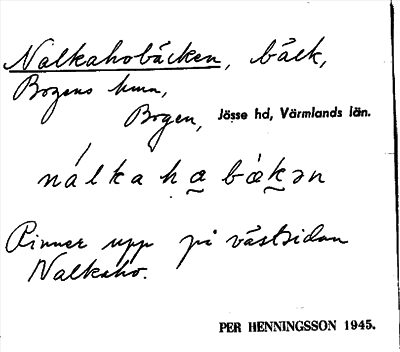 Nalkahobäcken, bäck,
Bogens hmn,
Bogen, Jösse hd, Värmlands län.
nálka hạ bǻkən
Rinner upp på västsidan
Nalkaho.
PER HENNINGSSON 1945.